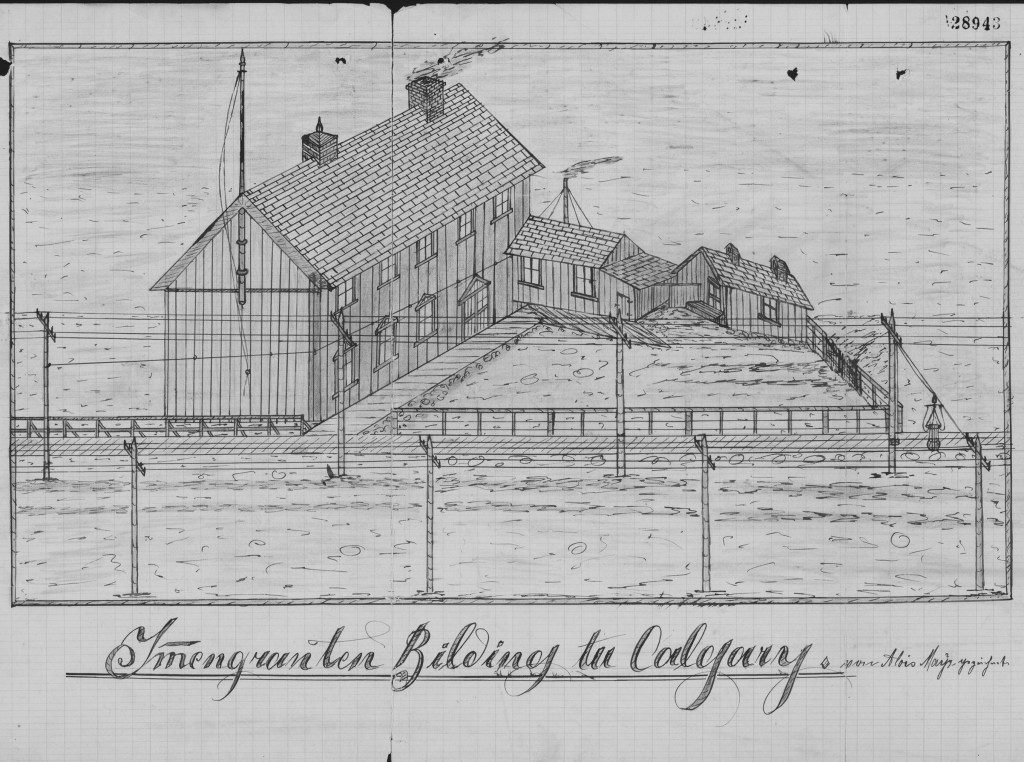 28943
Immengranten Bilding tu Calgary. von Alois gezeichnet